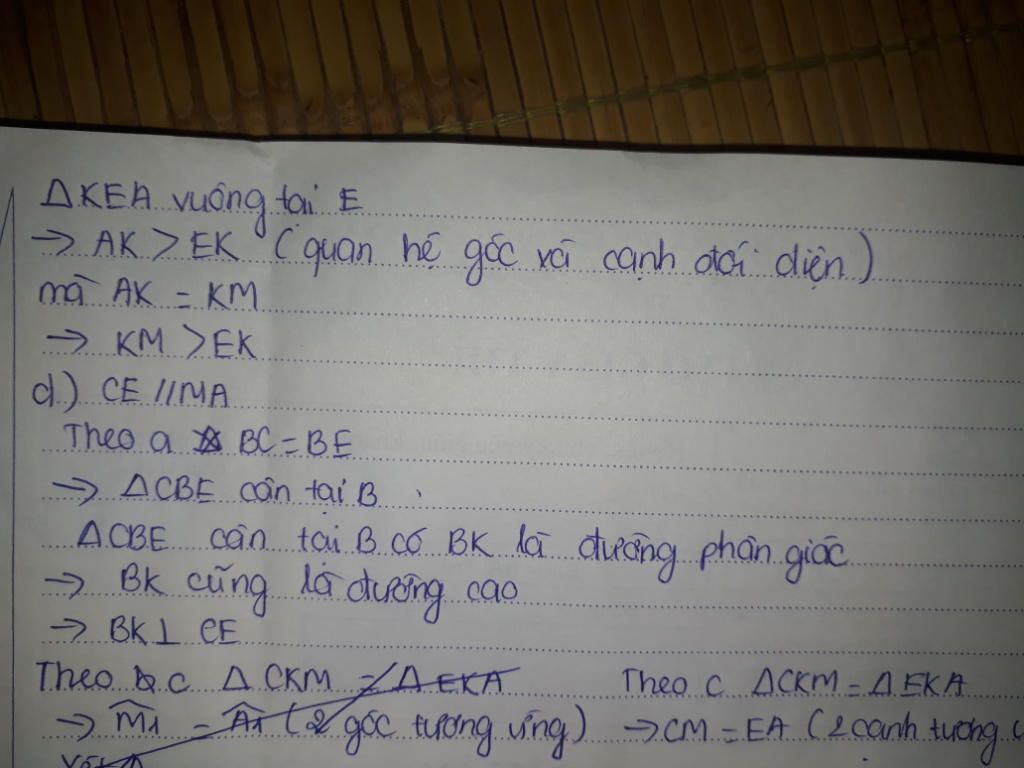 ΔKEA vuông tại E
→ AK > EK (quan hệ góc và cạnh đối diện)
mà AK = KM
→ KM > EK
d.) CE // MA
Theo a BC = BE
→ ΔCBE cân tại B
ΔCBE cân tại B có BK là đường phân giác
→ BK cũng là đường cao
→ BK ⊥ CE
Theo c Δ CKM = Δ EKA Theo c ΔCKM = Δ EKA
→ M̂1 = Â1 (2 góc tương ứng) → CM = EA (2 cạnh tương